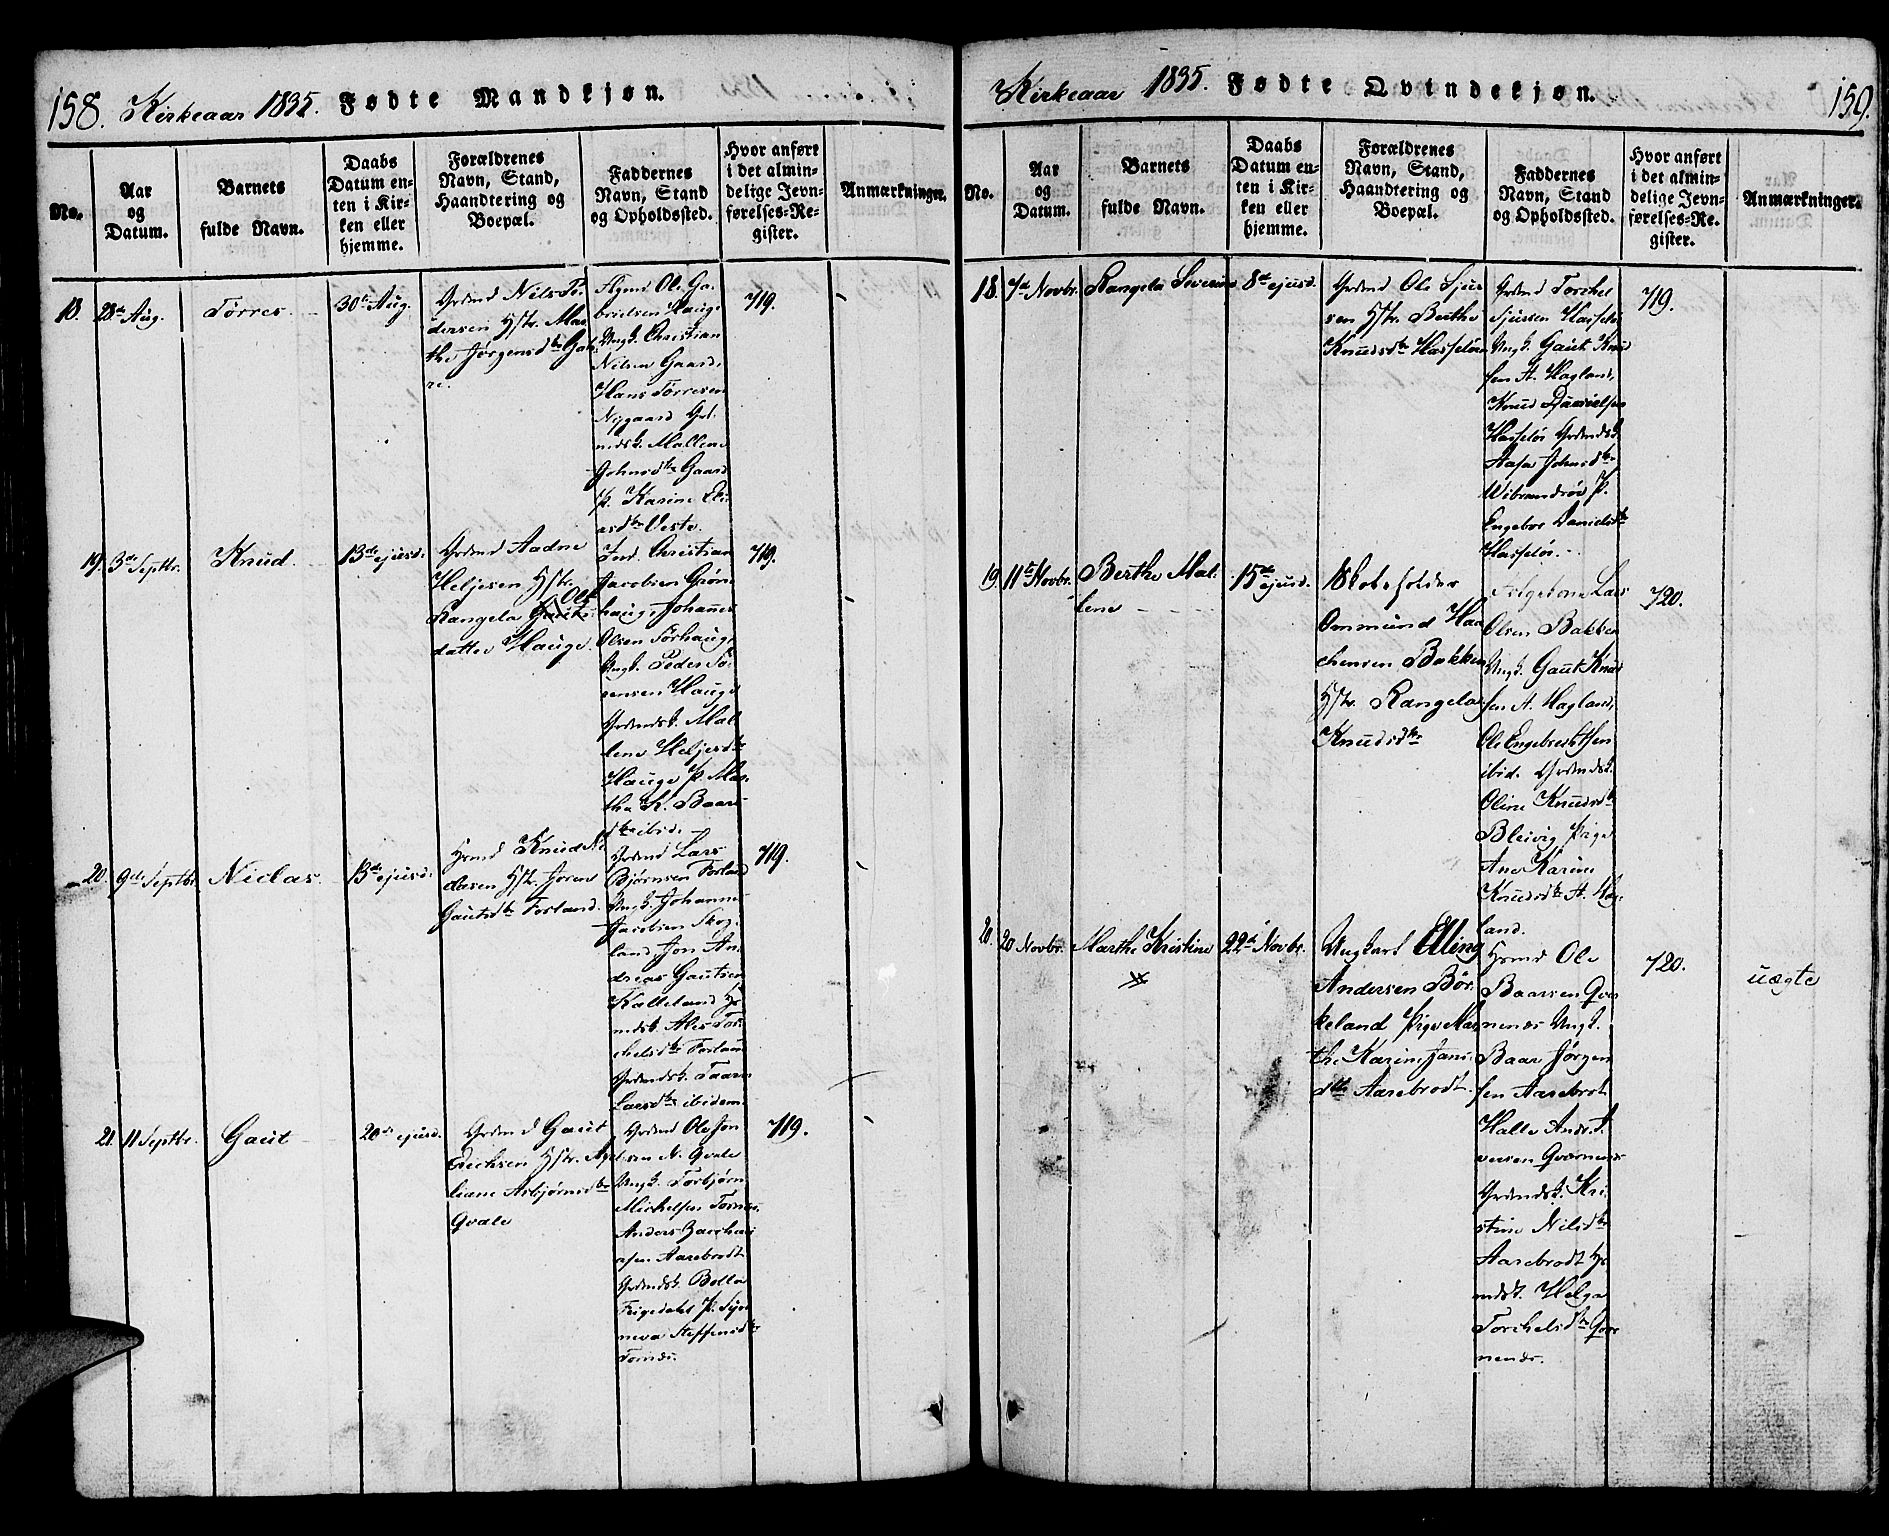 158. Kirkeaar 1835. Fødte Mandkjøn.
No.
Aar
og
Datum.
Barnets
fulde Navn.
Daabs
Datum en-
ten i Kir-
ken eller
hjemme.
Forældrenes
Navn, Stand,
Haandtering og
Boepæl.
Faddernes
Navn, Stand
og Opholdssted.
Hvor anført
i det almin-
delige Jevn-
førelses-Re-
gister.
Anmærkninger.
18. 28de Aug.
Torres
30te Aug.
Nils Pe
dersen Hstr. Mar
the Jørgensdtr
Ole Ga
brielsen Hauge
Ungk. Christian
Nilsen Gaard,
Hans Torresen
Nygaard
Mallene
Johnsdtr Gaard
P. Karine Eli
asdtr
719.
19. 3de Septbr.
Knud
13de ejusd:
Grdmd Aadne
Heljesen Hstr.
Rangela Ols
datter Hauge.
Christian
Jacobsen Grøn
haug, Johannes
Olsen Torhaug,
Ungk. Peder
Hauge
Grdmdsk. Mal
lene Heljesdtr
Hauge P. Mar
tha K. Baars
dtr ibid.
719.
20. 9de Septbr
Niclas
13de ejusd:
Hsmd Knud Ni
clasen Hstr.
Gautsdtr Forland.
Grdmd Lars
Bjørnsen Forland
Ungk. Johannes
Jacobsen Skog
land, Jon An
dreas Gautsen
Kalleland Hs
mdsk. Ales Tor
chelsdtr Forland
Grdmdsk.
Larsdtr ibidem
719.
21. 11 Septbr.
Gaut
20de ejusd.
Grdmd Gaut
Erichsen Hstr.
liane Asbjørnsdtr
Qvale
Grdmd Ole Jon
sen N. Qvale
Ungk. Torbjørn
Michelsen
Anders Zacchari
asen Aarebrodt
Grdmdsk.
P. Syn
neva Steffensdtr
719.
Kirkeaar 1835. Fødte Qvindekjøn. 159.
No.
Aar
og
Datum.
Barnets
fulde Navn.
Daabs
Datum en-
ten i Kir-
ken eller
hjemme.
Forældrenes
Navn, Stand,
Haandtering og
Boepæl.
Faddernes
Navn, Stand
og Opholdssted.
Hvor anført
i det almin-
delige Jevn-
førelses-Re-
gister.
Anmærkninger.
18. 7de Novbr.
Rangela Severine
8de ejusd.
Grdmd Ole Sjur
sen Hstr. Berthe
Knudsdtr Hasseløen
Grdmd Torchel
Sjursen Hasseløe
Ungk. Gaut Knud
sen A. Hagland,
Knud Danielsen
Hasseløe Grdmdsk.
Aasa Johnsdtr
P.
Engebor Danielsdtr
Hasseløe.
719.
19. 11te Novbr.
Berthe Mal
lene
15de ejusd.
Ommund Haa
chensen Bakken
Hstr. Rangela
Knudsdtr
Lars
Olsen Bakken
Ungk. Gaut Knud
sen A. Hagland,
Ole Engebrethsen
ibid. Grdmdsk.
Oline Knudsdtr
Bleivig Pige
Ane Karine
Knudsdtr A. Hag
land.
720.
20. 20 Novbr.
Marthe Kristine
22de Novbr.
Ungkarl Elling
Andersen Bør
keland Pige Mar
the Karine Jans
dtr Aarebrodt.
Hsmd Ole
Baarsen Qver
nenes Ungk.
Baar Jørgen
sen Aarebrot
Halle
versen Qværnenes
Grdmdsk. Kri
stine Nilsdtr
Aarebrodt Hs
mdsk. Helga
Torchelsdtr Qver
nenes.
720.
uægte